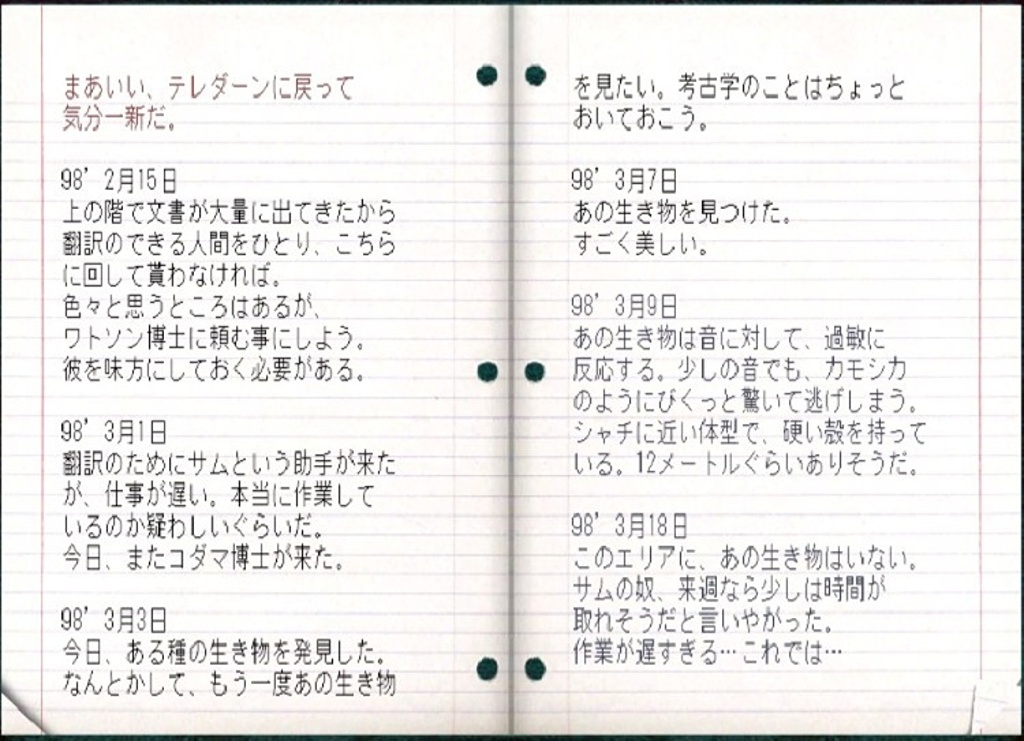 まあいい、テレダーンに戻って
気分一新だ。
98’ 2月15日
上の階で文書が大量に出てきたから
翻訳のできる人間をひとり、こちら
に回して貰わなければ。
色々と思うところはあるが、
ワトソン博士に頼む事にしよう。
彼を味方にしておく必要がある。
98’ 3月1日
翻訳のためにサムという助手が来た
が、仕事が遅い。本当に作業して
いるのか疑わしいぐらいだ。
今日、またコダマ博士が来た。
98’ 3月3日
今日、ある種の生き物を発見した。
なんとかして、もう一度あの生き物
を見たい。考古学のことはちょっと
おいておこう。
98’ 3月7日
あの生き物を見つけた。
すごく美しい。
98’ 3月9日
あの生き物は音に対して、過敏に
反応する。少しの音でも、カモシカ
のようにびくっと驚いて逃げしまう。
シャチに近い体型で、硬い殻を持って
いる。12メートルぐらいありそうだ。
98’ 3月18日
このエリアに、あの生き物はいない。
サムの奴、来週なら少しは時間が
取れそうだと言いやがった。
作業が遅すぎる…これでは…